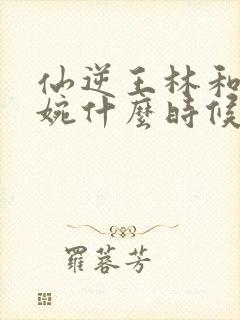 仙逆王林和
婉什麼時候
羅蓉芳